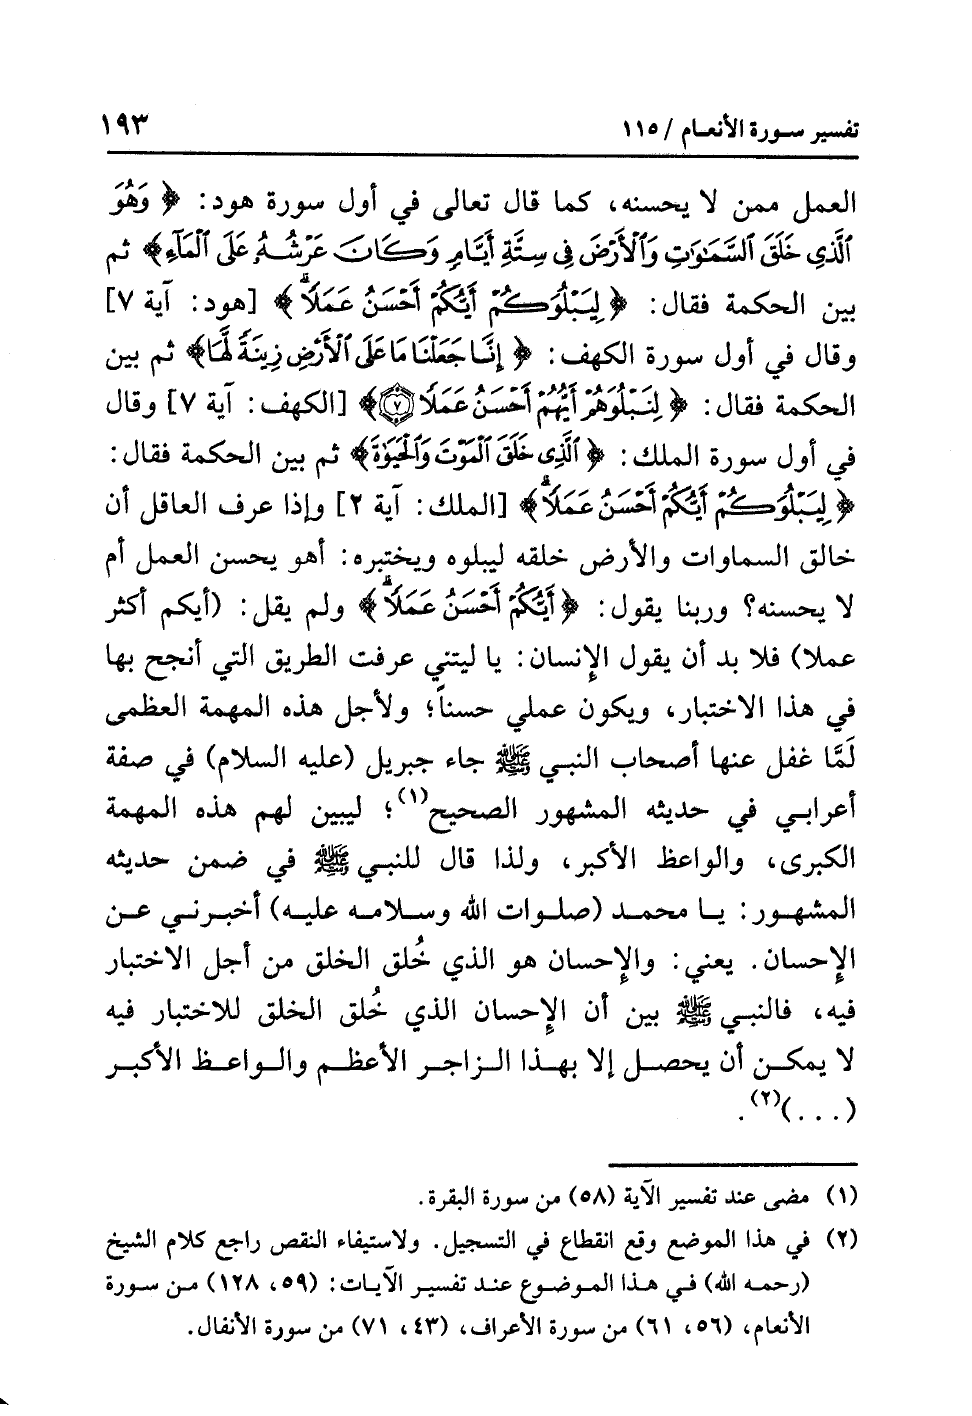 تفسير سورة الأنعام / ١١٥
١٩٣
العمل ممن لا يحسنه، كما قال تعالى في أول سورة هود: ﴿ وَهُوَ
ٱلَّذِى خَلَقَ ٱلسَّمَٰوَٰتِ وَٱلْأَرْضَ فِى سِتَّةِ أَيَّامٍ وَكَانَ عَرْشُهُۥ عَلَى ٱلْمَآءِ﴾ ثم
بين الحكمة فقال: ﴿ لِيَبْلُوَكُمْ أَيُّكُمْ أَحْسَنُ عَمَلًاۗ ﴾ [هود: آية ٧]
وقال في أول سورة الكهف: ﴿ إِنَّا جَعَلْنَا مَا عَلَى ٱلْأَرْضِ زِينَةً لَّهَا﴾ ثم بين
الحكمة فقال: ﴿ لِنَبْلُوَهُمْ أَيُّهُمْ أَحْسَنُ عَمَلًا ٧﴾ [الكهف: آية ٧] وقال
في أول سورة الملك: ﴿ ٱلَّذِى خَلَقَ ٱلْمَوْتَ وَٱلْحَيَوٰةَ﴾ ثم بين الحكمة فقال:
﴿ لِيَبْلُوَكُمْ أَيُّكُمْ أَحْسَنُ عَمَلًاۗ﴾ [الملك: آية ٢] وإذا عرف العاقل أن
خالق السماوات والأرض خلقه ليبلوه ويختبره: أهو يحسن العمل أم
لا يحسنه؟ وربنا يقول: ﴿ أَيُّكُمْ أَحْسَنُ عَمَلًاۗ﴾ ولم يقل: (أيكم أكثر
عملا) فلا بد أن يقول الإنسان: يا ليتني عرفت الطريق التي أنجح بها
في هذا الاختبار، ويكون عملي حسناً؛ ولأجل هذه المهمة العظمى
لَمَّا غفل عنها أصحاب النبي ﷺ جاء جبريل (عليه السلام) في صفة
أعرابي في حديثه المشهور الصحيح(١)؛ ليبين لهم هذه المهمة
الكبرى، والواعظ الأكبر، ولذا قال للنبي ﷺ في ضمن حديثه
المشهور: يا محمد (صلوات الله وسلامه عليه) أخبرني عن
الإحسان. يعني: والإحسان هو الذي خُلق الخلق من أجل الاختبار
فيه، فالنبي ﷺ بين أن الإحسان الذي خُلق الخلق للاختبار فيه
لا يمكن أن يحصل إلا بهذا الزاجر الأعظم والواعظ الأكبر
(...)(٢).
(١) مضى عند تفسير الآية (٥٨) من سورة البقرة.
(٢) في هذا الموضع وقع انقطاع في التسجيل. ولاستيفاء النقص راجع كلام الشيخ
(رحمه الله) في هذا الموضوع عند تفسير الآيات: (٥٩، ١٢٨) من سورة
الأنعام، (٥٦، ٦١) من سورة الأعراف، (٤٣، ٧١) من سورة الأنفال.